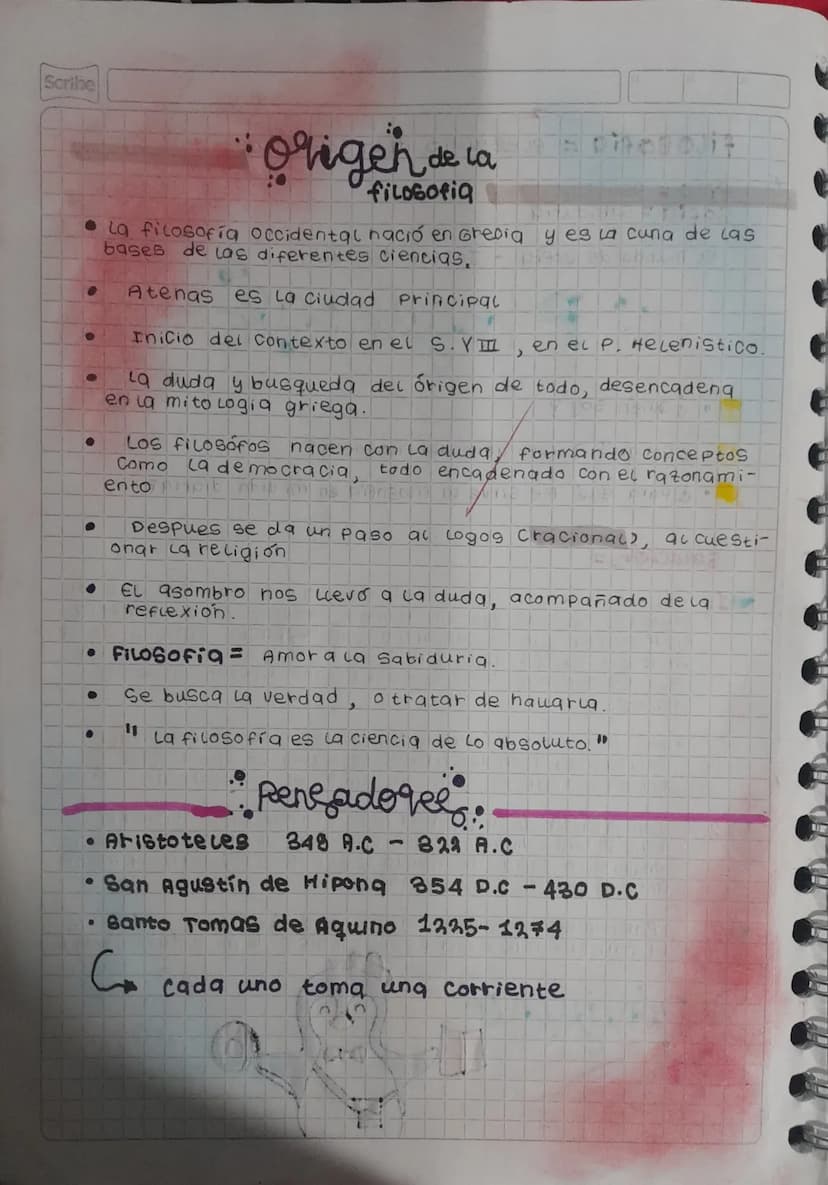 Scribe
Origen de la
filosofia
• La filosofía occidental nació en Grecia y es la cuna de las
bases de las diferentes ciencias.
• Atenas es la ciudad principal
• Inicio del contexto en el S. VIII, en el P. Helenistico.
• La duda y busqueda del órigen de todo, desencadena
en la mitologia griega.
• Los filosófos nacen con la duda, formando conceptos
como la democracia, todo encadenado con el razonami-
ento
• Despues se da un paso al logos (racional), al cuesti-
onar la religión
• El asombro nos llevó a la duda, acompañado de la
reflexión.
• Filosofia = Amor a la sabiduria.
• Se busca la verdad, o tratar de hallarla.
• " La filosofía es la ciencia de lo absoluto."
Pensadores
• Aristoteles 348 A.C - 322 A.C
• San Agustín de Hipona 354 D.C - 430 D.C
• Santo Tomas de Aquino 1225- 1274
cada uno toma una corriente